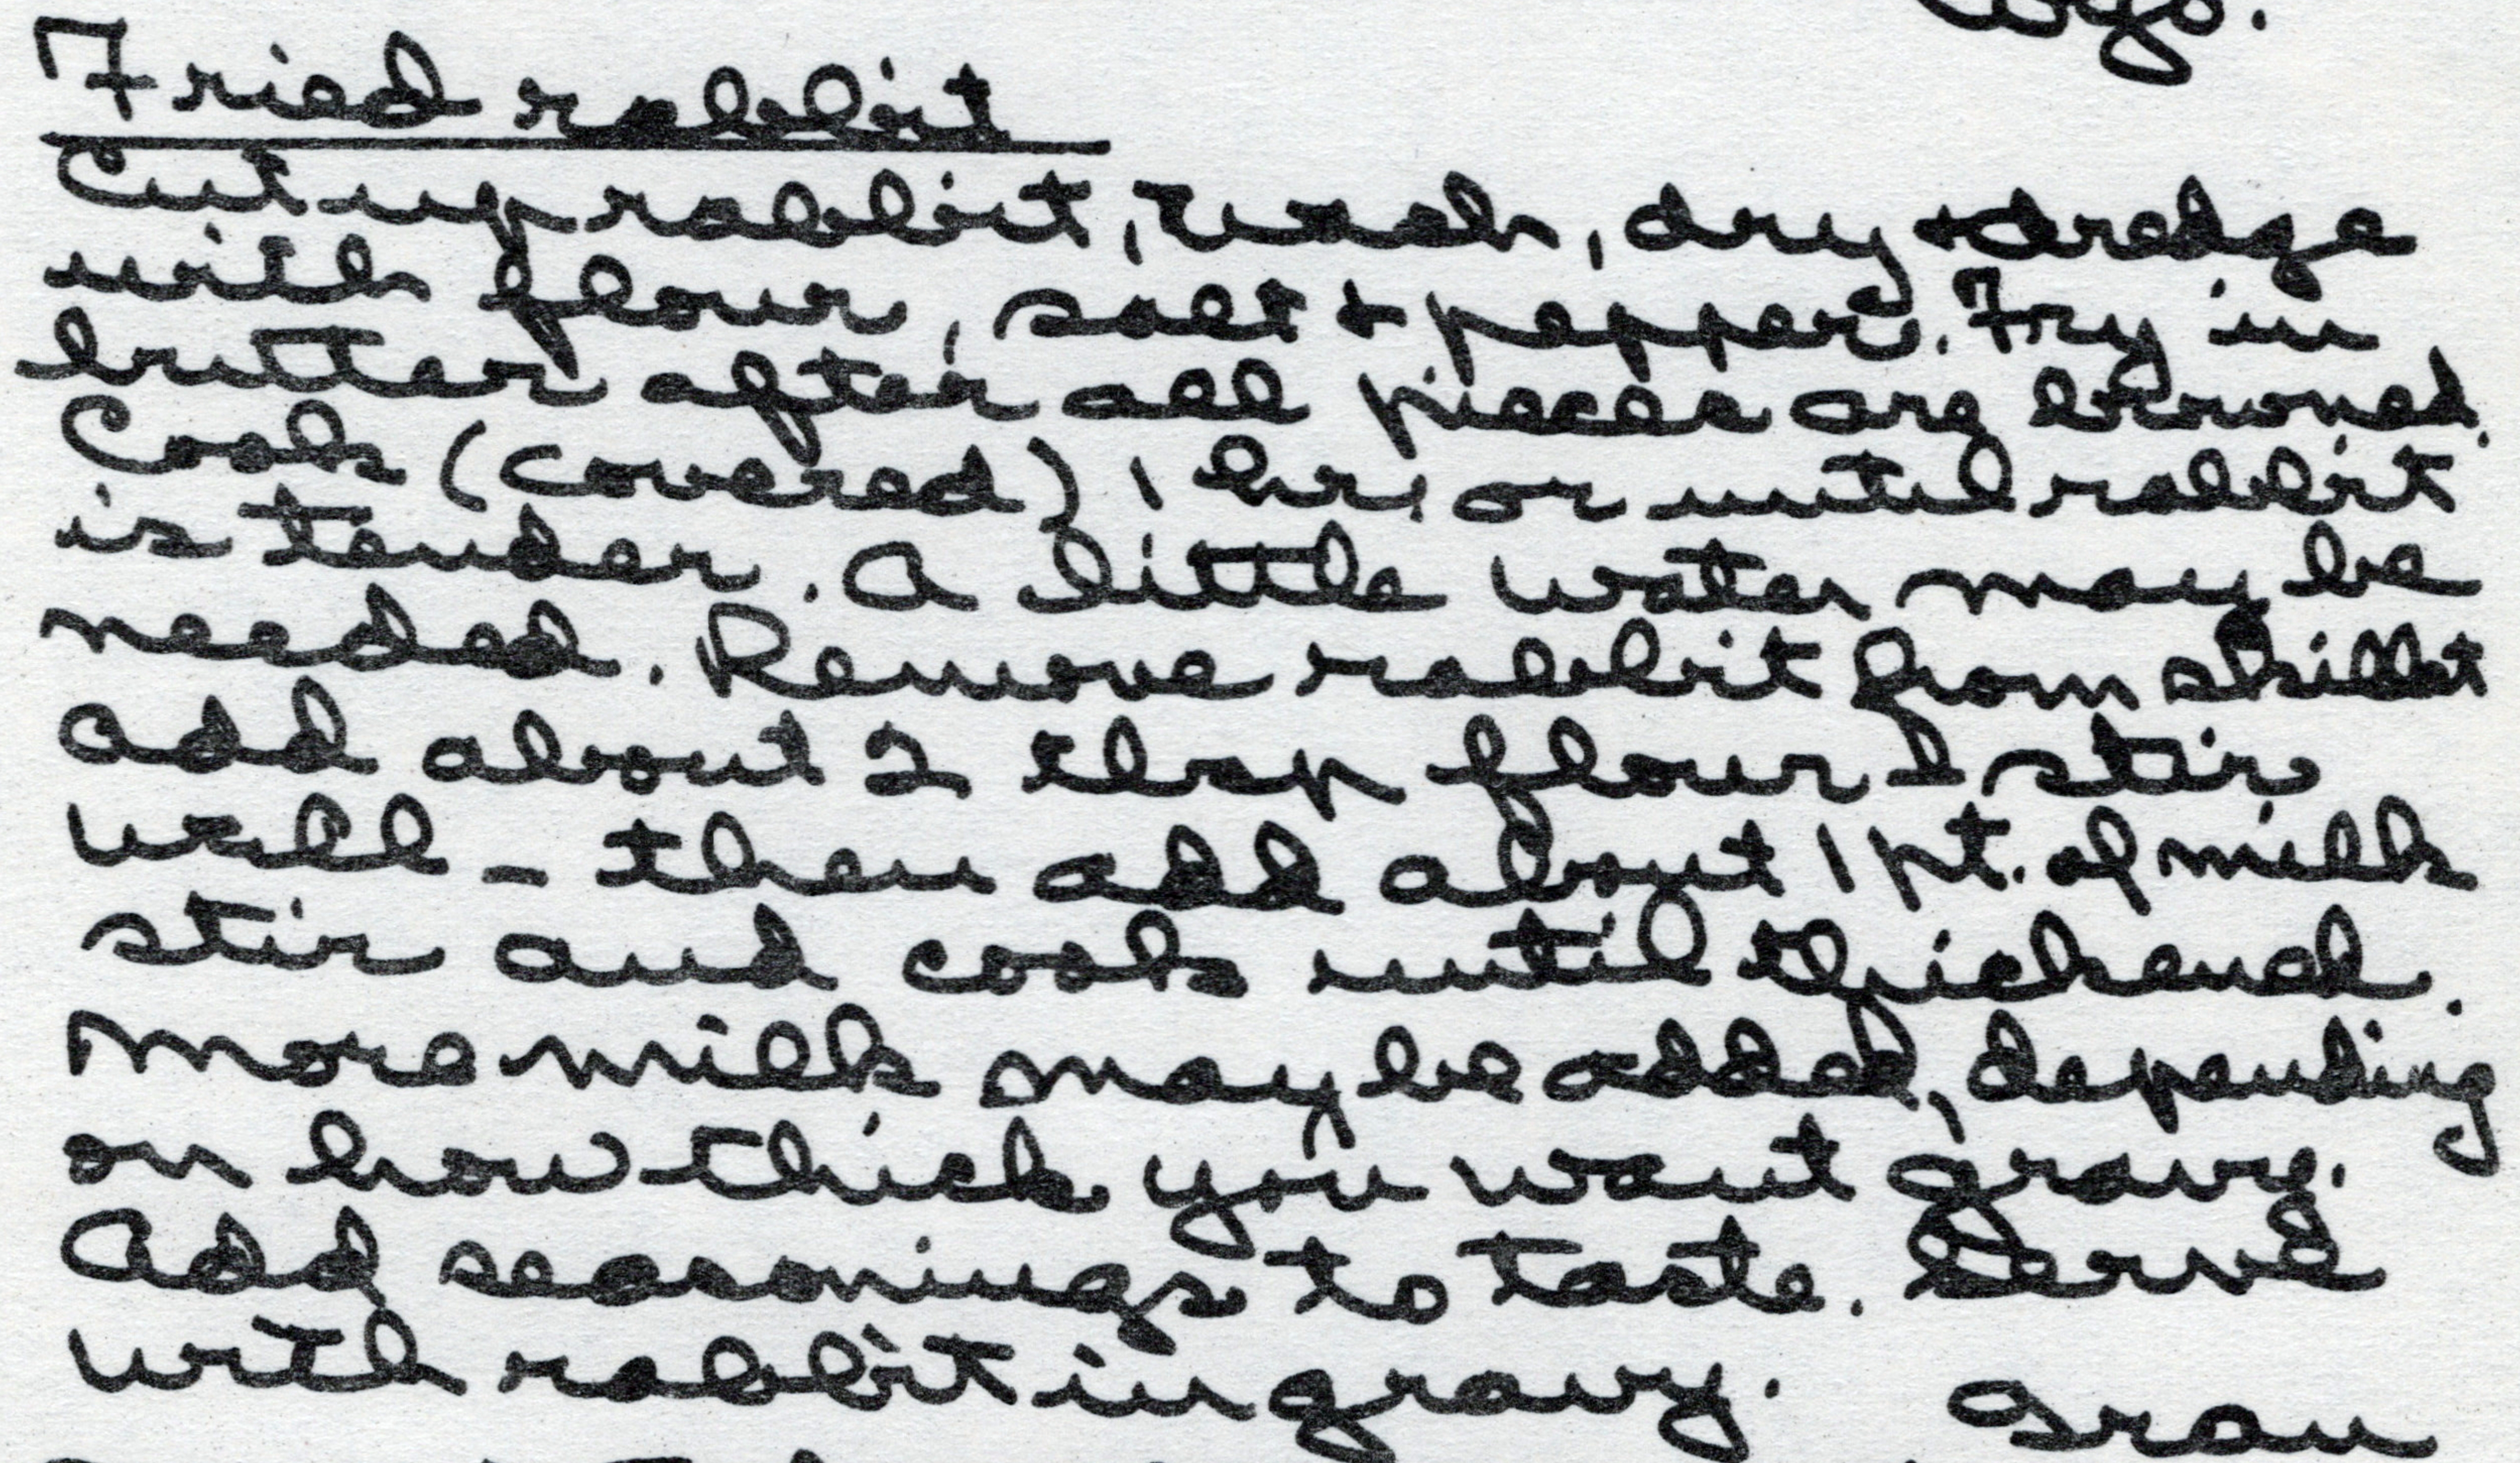 Fried rabbit
Cut up rabbit, wash, dry & dredge
with flour, salt & pepper. Fry in
butter after all pieces are browned.
Cook (covered) 1 hr. or until rabbit
is tender. A little water may be
needed. Remove rabbit from skillet
add about 2 tbsp flour & stir
well - then add about 1 pt. of milk
stir and cook until thickened.
More milk may be added, depending
on how thick you want gravy.
Add seasonings to taste. Serve
with rabbit in gravy.
Gran